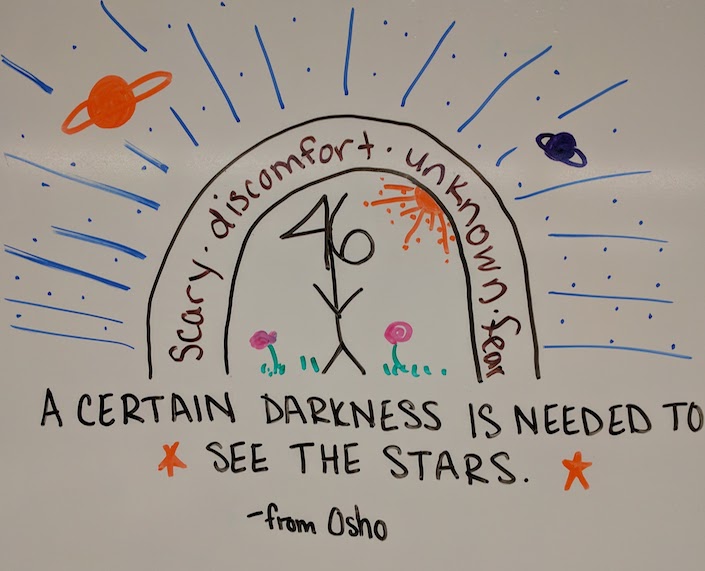 scary · discomfort · unknown · fear
46
A CERTAIN DARKNESS IS NEEDED TO
SEE THE STARS.
-from Osho